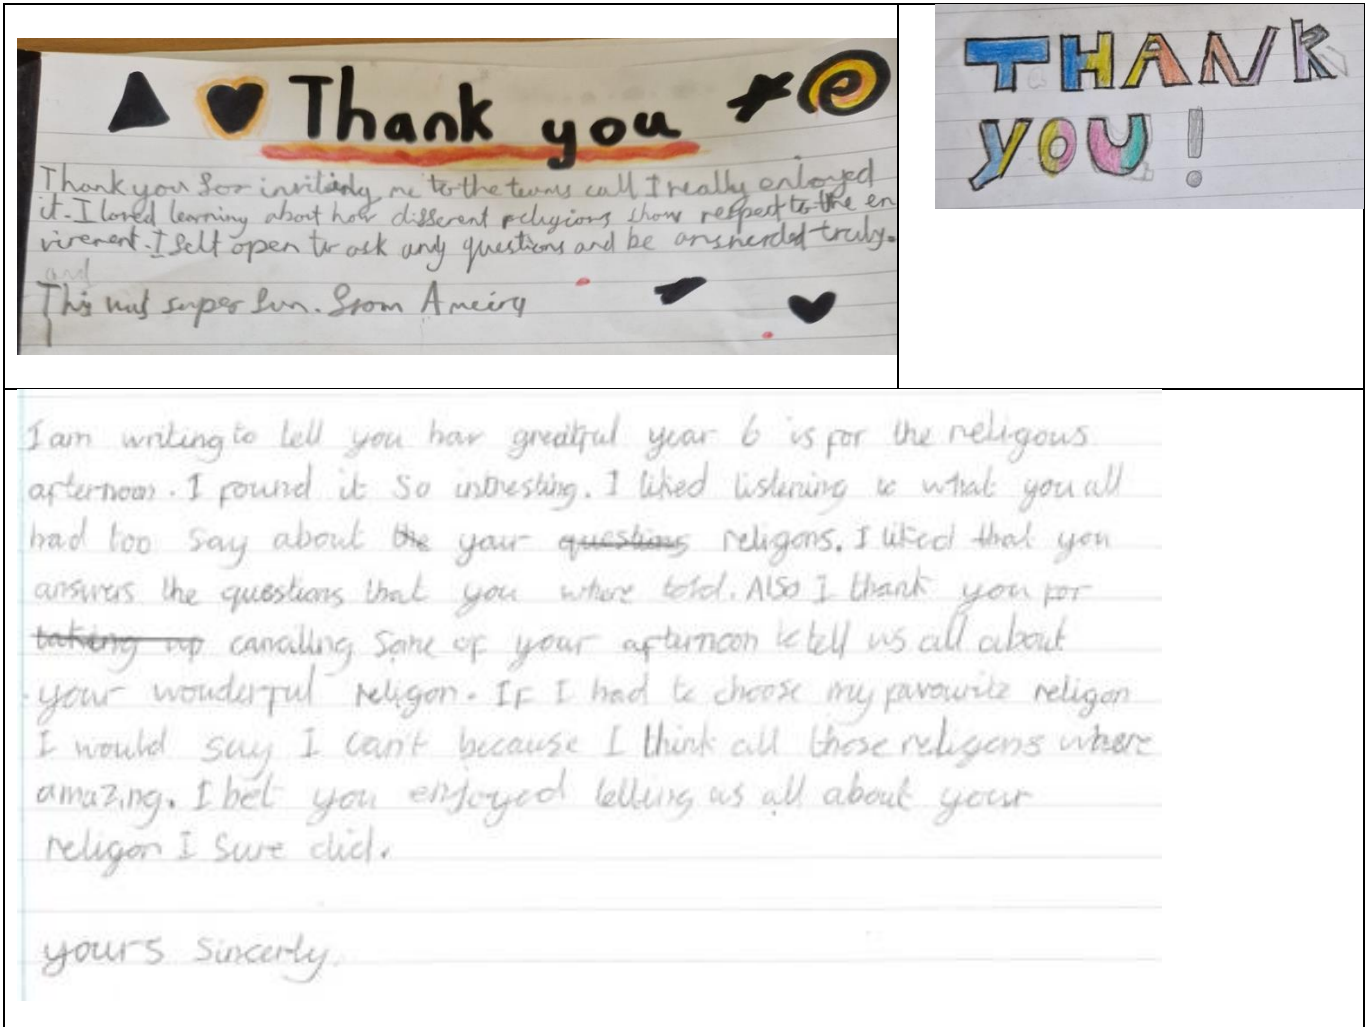 Thank you
Thank you for invitindg me to the teams call I really enloyed
it. I loved learning about how different religions show respect to the en
virement. I felt open to ask any questions and be answerded truly.
and
This was super fun. from Ameira
THANK
YOU!
I am writing to tell you how greatful year 6 is for the religous
afternoon. I found it So intresting. I liked listening to what you all
had too say about the your questions religons. I liked that you
answers the questions that you where told. Also I thank you for
taking up cancilling Some of your afternoon to tell us all about
your wonderful religon. If I had to choose my favourite religon
I would say I can't because I think all those religons where
amazing. I bet you enjoyed telling us all about your
religon I Sure did.
yours Sincerly.